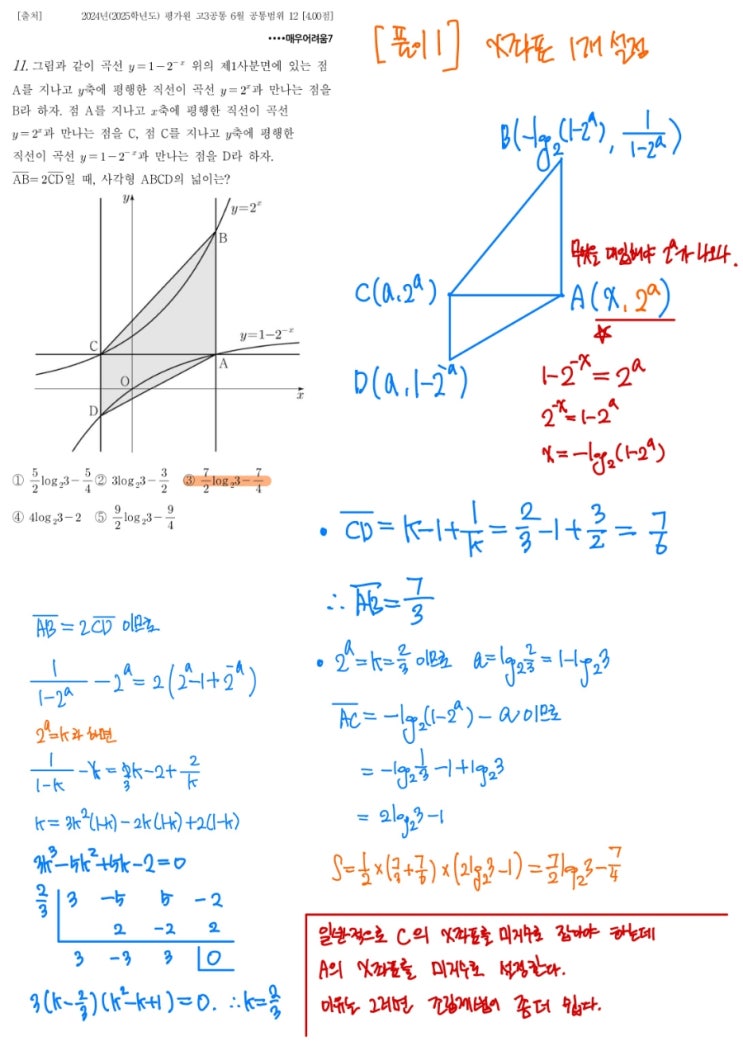 [출처] 2024년(2025학년도) 평가원 고3공통 6월 공통범위 12 [4.00점]
••••매우어려움7
11. 그림과 같이 곡선 y=1-2^{-x} 위의 제1사분면에 있는 점
A를 지나고 y축에 평행한 직선이 곡선 y=2^x과 만나는 점을
B라 하자. 점 A를 지나고 x축에 평행한 직선이 곡선
y=2^x과 만나는 점을 C, 점 C를 지나고 y축에 평행한
직선이 곡선 y=1-2^{-x}과 만나는 점을 D라 하자.
AB=2CD일 때, 사각형 ABCD의 넓이는?
y
y=2^x
B
y=1-2^{-x}
C
A
O
x
D
① 5/2 log_2 3 - 5/4 ② 3log_2 3 - 3/2 ③ 7/2 log_2 3 - 7/4
④ 4log_2 3 - 2 ⑤ 9/2 log_2 3 - 9/4
[풀이1] x좌표 1개 설정
B(-log_2(1-2^a), 1/(1-2^a))
무엇을 대입해야 2^a가 나오나.
C(a, 2^a)
A(x, 2^a)
D(a, 1-2^{-a})
1-2^{-x}=2^a
2^{-x}=1-2^a
x=-log_2(1-2^a)
AB=2CD 이므로
1/(1-2^a) - 2^a = 2(2^a-1+2^{-a})
2^a=k라 하면
1/(1-k) - k = 2k-2+2/k
3
k=3k^2(1-k)-2k(1-k)+2(1-k)
3k^3-5k^2+5k-2=0
2/3 | 3 -5 5 -2
2 -2 2
3 -3 3 | 0
3(k-2/3)(k^2-k+1)=0. ∴k=2/3
• CD=k-1+1/k=2/3-1+3/2=7/6
∴ AB=7/3
• 2^a=k=2/3 이므로 a=log_2 2/3=1-log_2 3
AC=-log_2(1-2^a)-a 이므로
=-log_2 1/3-1+log_2 3
=2log_2 3-1
S=1/2×(7/3+7/6)×(2log_2 3-1)=7/2 log_2 3-7/4
일반적으로 C의 x좌표를 미지수로 잡아야 하는데
A의 x좌표를 미지수로 설정한다.
이유는 그러면 조립제법이 좀더 쉽다.